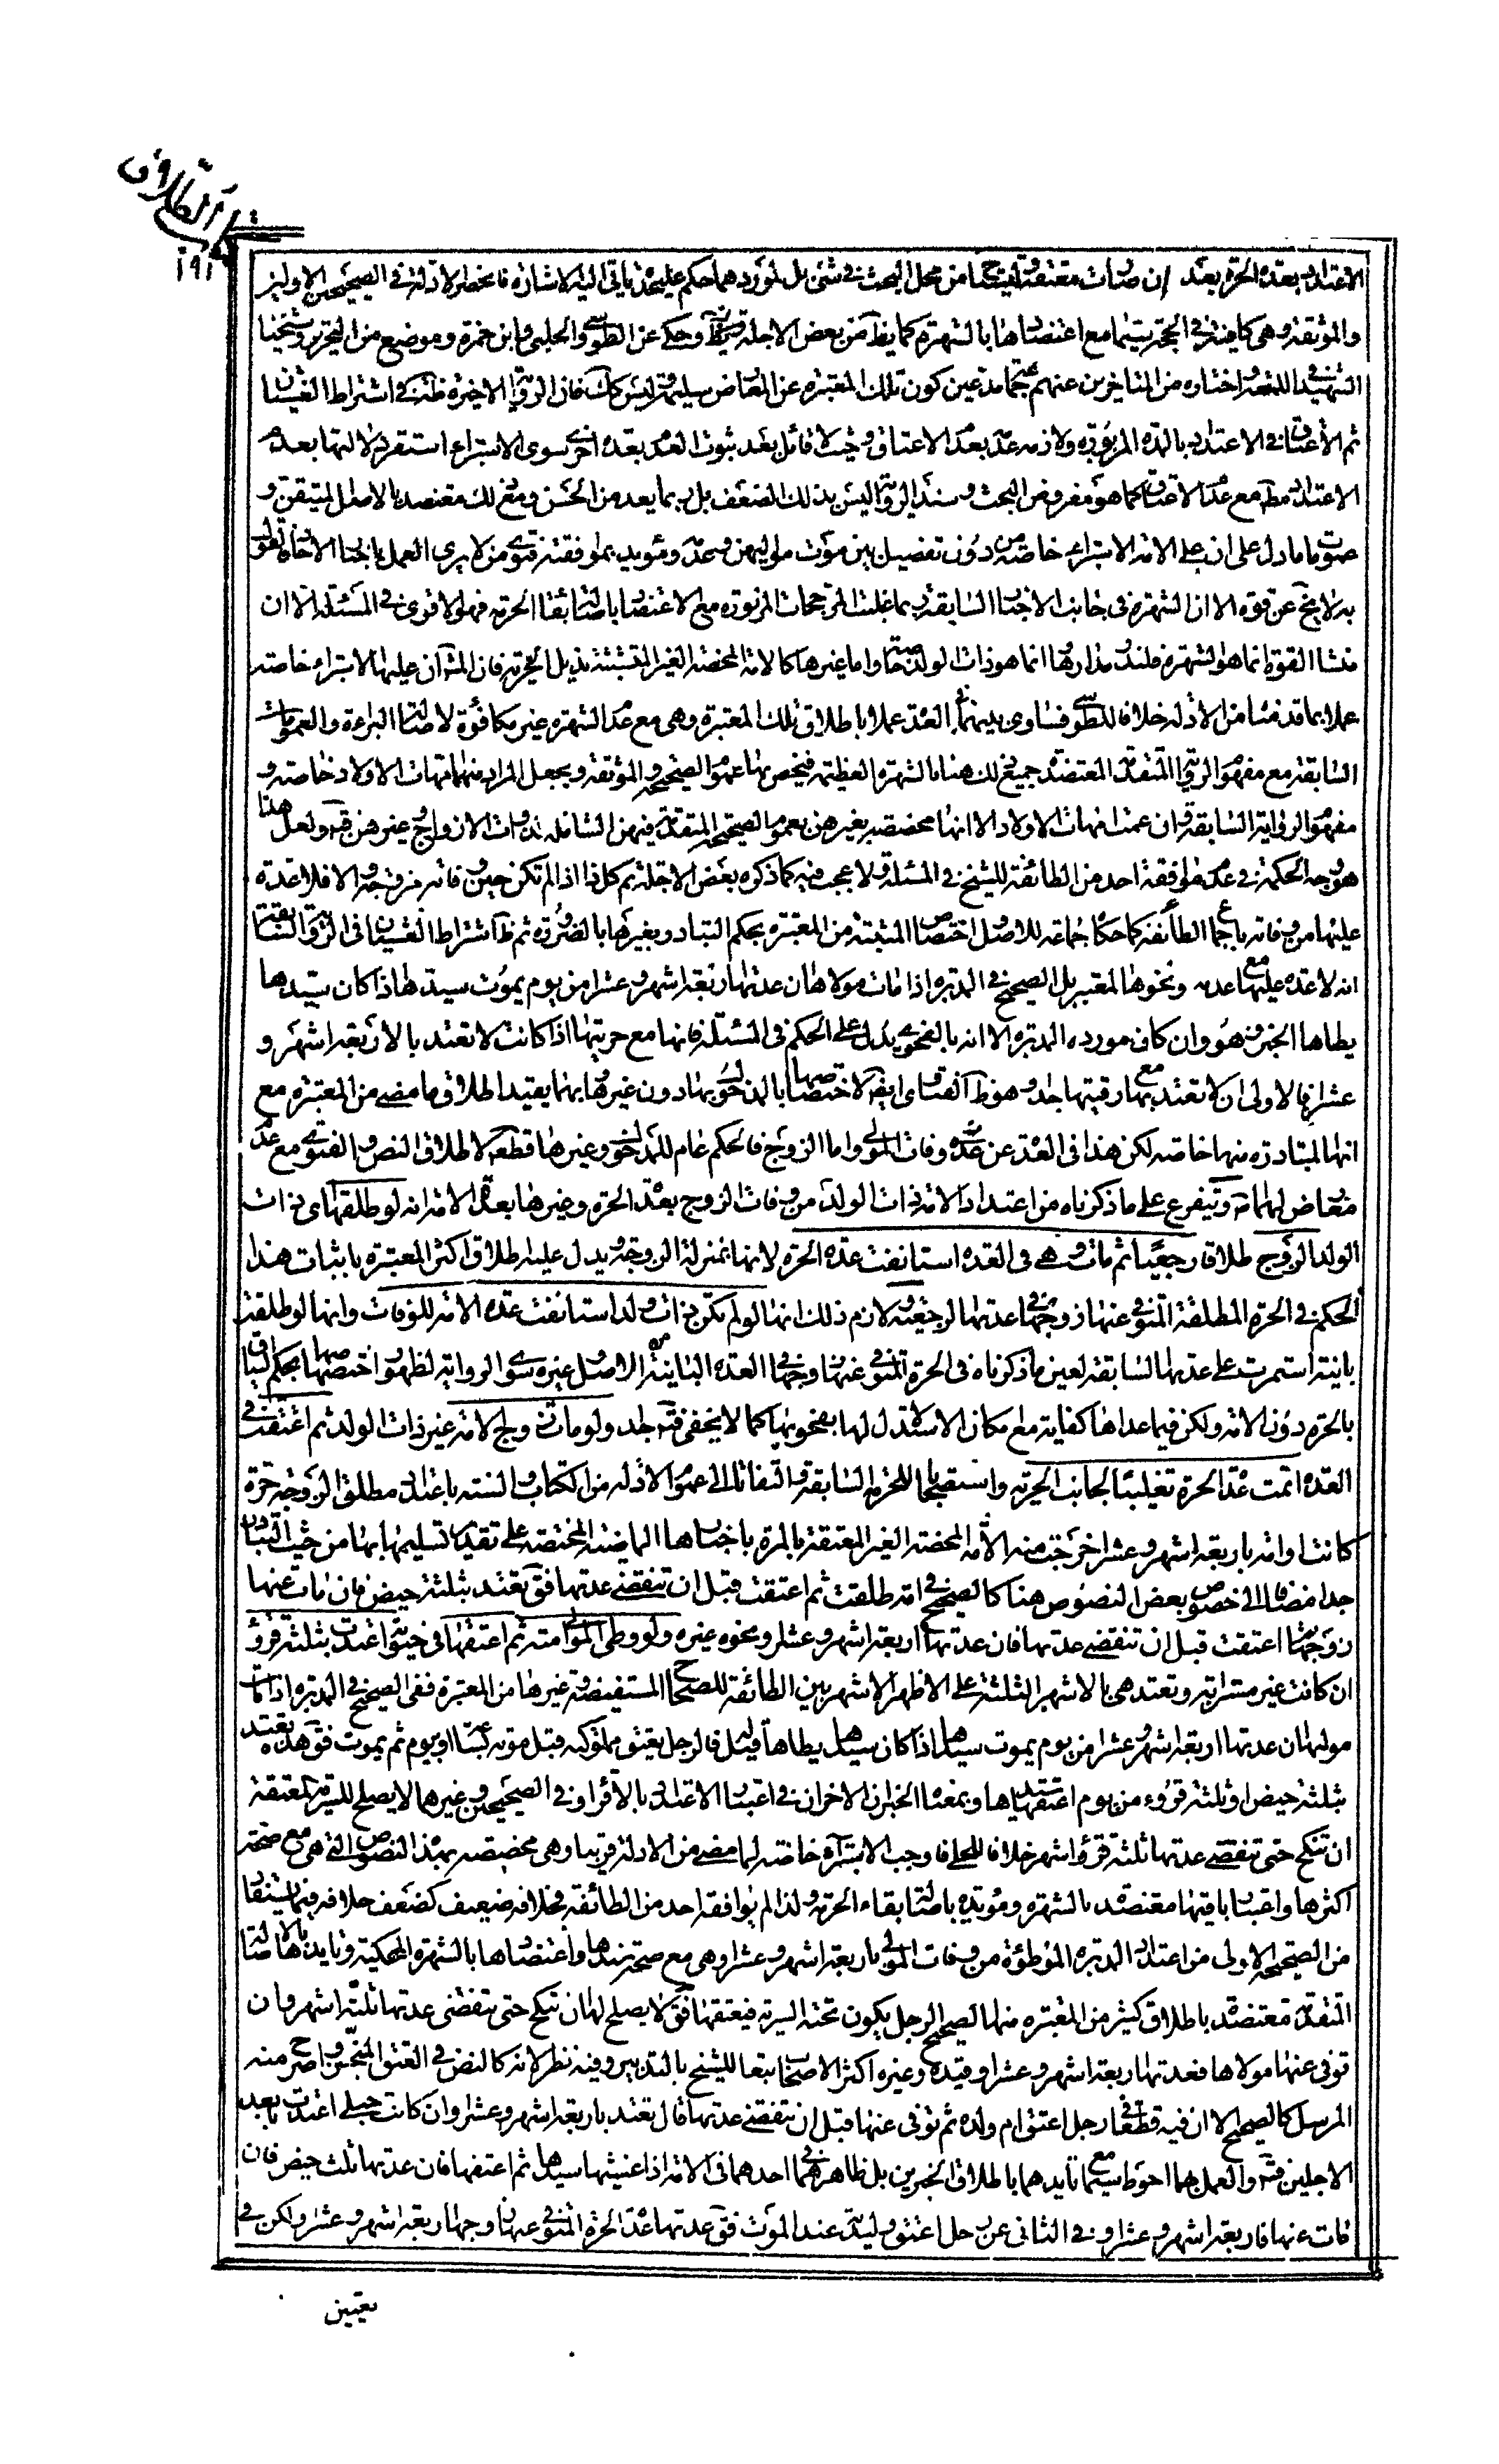 كتاب الطلاق
الاعتداد بعدة الحرة بعد إن صارت معتقة ليستا من محل البحث في شيء بل مورد هما حكم عليحدة يأتي اليه الاشارة فانحصر الادلة في الصحيحين الاولين
والموثقة وهي كافية في الحجة سيما مع اعتضادها بالشهرة كما يظهر من بعض الاجلة وحكي عن الطوسي والحلبي وابن حمزة وموضع من التحرير وشيخنا
الشهيد في اللمعة واختاره من المتاخرين عنهم جماعة مدعين كون تلك المعتبرة عن المعارض سليمة وليس كذلك فان الرواية الاخيرة ظاهرة في اشتراط الغشيان
ثم الاعتاق في الاعتداد بالمدة المزبورة ولازمه عدمه بعدم الاعتاق وحيث لا قائل بعد ثبوت العدم بعدة اخرى سوى الاستبراء استقر دلالتها بعدم
الاعتداد مطلقا مع عدم الاعتاق كما هو مفروض البحث وسند الرواية ليس بذلك الضعف بل ربما يعد من الحسن ومع ذلك معتضد بالاصل المتيقن و
عموم ما دل على ان على الامة الاستبراء خاصة من دون تفصيل بين موت مواليهن وعدمه ومؤيد بموافقة فتوى من لا يرى العمل باخبار الاحاد فالقول
به لا يخ عن قوة الا ان الشهرة في جانب الاخبار السابقة ربما غلبت المرجحات المزبورة مع الاعتضاد باصالة بقاء الحرمة فهو لا قوى في المسئلة الا ان
منشا القوة انما هو الشهرة فليدر مدارها وانما هو ذات الولد خاصة واما غيرها كالامة المحضة الغير المتشبثة بذيل الحرية فان المشهور ان عليها الاستبراء خاصة
عملا بما قدمنا من الادلة خلافا للطوسي فساوى بينهما في العدة عملا باطلاق تلك المعتبرة وهي مع عدم الشهرة غير مكافئة لاصالة البراءة والعمومات
السابقة مع مفهوم الرواية المتقدمة المعتضد جميع ذلك هنا بالشهرة العظيمة فيخص بها عموم الصحيحة والموثقة ويجعل المراد منهما امهات الاولاد خاصة و
مفهوم الرواية السابقة وان عمت امهات الاولاد الا انها مخصصة بغيرهن بعموم الصحيحة المتقدمة فيهن الشاملة لذوات الازواج وغيرهن فتدبر ولعل هذا
هو وجه الحكمة في عدم موافقة احد من الطائفة للشيخ في المسئلة ولا عجب فيه كما ذكره بعض الاجلة ثم كل ذا اذا لم تكن حين وفاته مزوجة والا فلا عدة
عليها من وفاته باجماع الطائفة كما حكاه جماعة للاصل واختصاص المثبتة من المعتبرة بحكم التبادر وبغيرها بالضرورة ثم ظاهر اشتراط الغشيان في الرواية السابقة
انه لا عدة عليها مع عدمه ونحوها المعتبر بل الصحيح في المدبرة اذا مات مولاها ان عدتها اربعة اشهر وعشرا من يوم يموت سيدها اذا كان سيدها
يطاها الخبر وهو وان كان مورده المدبرة الا انه بالفحوى يدل على الحكم في المسئلة فانها مع حريتها اذا كانت لا تعتد بالاربعة اشهر و
عشرا فالاولى ان لا تعتد بها مع رقيتها جدا وهو ظاهر الفتاوى ايضا لاختصاصها بالمدخول بها دون غيرها وبهما يقيد اطلاق ما مضى من المعتبرة مع
انها المتبادرة منها خاصة لكن هذا في العدة عن وفات المولى واما الزوج فالحكم عام للمدخولة وغيرها قطعا لاطلاق النص والفتوى مع عدم
معارض لهما هنا ويتفرع على ما ذكرناه من اعتداد الامة ذات الولد من وفات الزوج بعدة الحرة وغيرها بعدة الامة انه لو طلقها اي ذات
الولد الزوج طلاقا رجعيا ثم مات وهي في العدة استانفت عدة الحرة لانها بمنزلة الزوجة ويدل عليه اطلاق اكثر المعتبرة باثبات هذا
الحكم في الحرة المطلقة المتوفى عنها زوجها في عدتها الرجعية ولازم ذلك انها لو لم تكن ذات ولد استانفت عدة الامة للوفات وانها لو طلقت
باينة استمرت على عدتها السابقة لعين ما ذكرناه في الحرة المتوفى عنها زوجها في العدة الباينة من الاصل وغيره سوى الرواية لظهور اختصاصها بحكم السياق
بالحرة دون الامة ولكن فيما عداها كفاية مع امكان الاستدلال لها بفحويها كما لا يخفى فتدبر جدا ولو مات زوج الامة غير ذات الولد ثم اعتقت في
العدة اتمت عدة الحرة تغليبا لجانب الحرية واستصحابا للحرمة السابقة والتفاتا الى عموم الادلة من الكتاب والسنة باعتداد مطلق الزوجة حرة
كانت او امة باربعة اشهر وعشرا خرجت منه الامة المحضة الغير المعتقة بالمرة باخبارها الماضية المختصة على تقدير تسليمها بها من حيث التبادر
جدا مضافا الى خصوص بعض النصوص هنا كالصحيح في امة طلقت ثم اعتقت قبل ان تنقضي عدتها فق تعتد بثلثة حيض فان مات عنها
زوجها ثم اعتقت قبل ان تنقضي عدتها فان عدتها اربعة اشهر وعشرا ونحوه غيره ولو وطئ المولى امته ثم اعتقها في حيوته اعتدت بثلثة قروء
ان كانت غير مسترابة وتعتد هي بالاشهر الثلثة على الاظهر الاشهر بين الطائفة للصحاح المستفيضة وغيرها من المعتبرة ففي الصحيح في المدبرة اذا مات
مولاها ان عدتها اربعة اشهر وعشرا من يوم يموت سيدها اذا كان سيدها يطاها قيل له فالرجل يعتق مملوكته قبل موته بساعة او بيوم ثم يموت فق هذه تعتد
بثلثة حيض او ثلثة قروء من يوم اعتقها سيدها وبمعناه الخبران الاخران في اعتبار الاعتداد بالاقراء وفي الصحيحين وغيرهما لا يصلح للسرية المعتقة
ان تنكح حتى تنقضي عدتها ثلثة قروء او اشهر خلافا للحلي فاوجب الاستبراء خاصة لما مضى من الادلة قريبا وهي مخصصة بهذا النصوص التي هي مع صحة
اكثرها واعتبار باقيها معتضدة بالشهرة ومؤيدة باصالة بقاء الحرمة ولذا لم يوافقه احد من الطائفة فخلافه ضعيف كضعف خلافه فيما يستفاد
من الصحيحة الاولى من اعتداد المدبرة الموطوئة من وفات المولى باربعة اشهر وعشرا وهي مع صحة سندها واعتضادها بالشهرة المحكية وتاييدها بالاصالة
المتقدمة معتضدة باطلاق كثير من المعتبرة منها الصحيح الرجل يكون تحته السرية فيعتقها فق لا يصلح لها ان تنكح حتى تنقضي عدتها ثلثة اشهر وان
توفى عنها مولاها فعدتها اربعة اشهر وعشرا وقيده وغيره اكثر الاصحاب تبعا للشيخ بالتدبير وفيه نظر لانه كالنص في العتق المنجز واصرح منه
المرسل كالصحيح الا ان فيه قطعا في رجل اعتق ام ولده ثم توفى عنها قبل ان تنقضي عدتها قال تعتد باربعة اشهر وعشرا وان كانت حبلى اعتدت بابعد
الاجلين فتدبر والعمل بهما احوط سيما مع تايدهما باطلاق الخبرين بل ظاهرهما في احدهما في الامة اذا غشيها سيدها ثم اعتقها فان عدتها ثلث حيض فان
مات عنها فاربعة اشهر وعشرا وفي الثاني عن رجل اعتق وليدته عند الموت فق عدتها عدة الحرة المتوفى عنها زوجها اربعة اشهر وعشرا ولكن في
تعيين